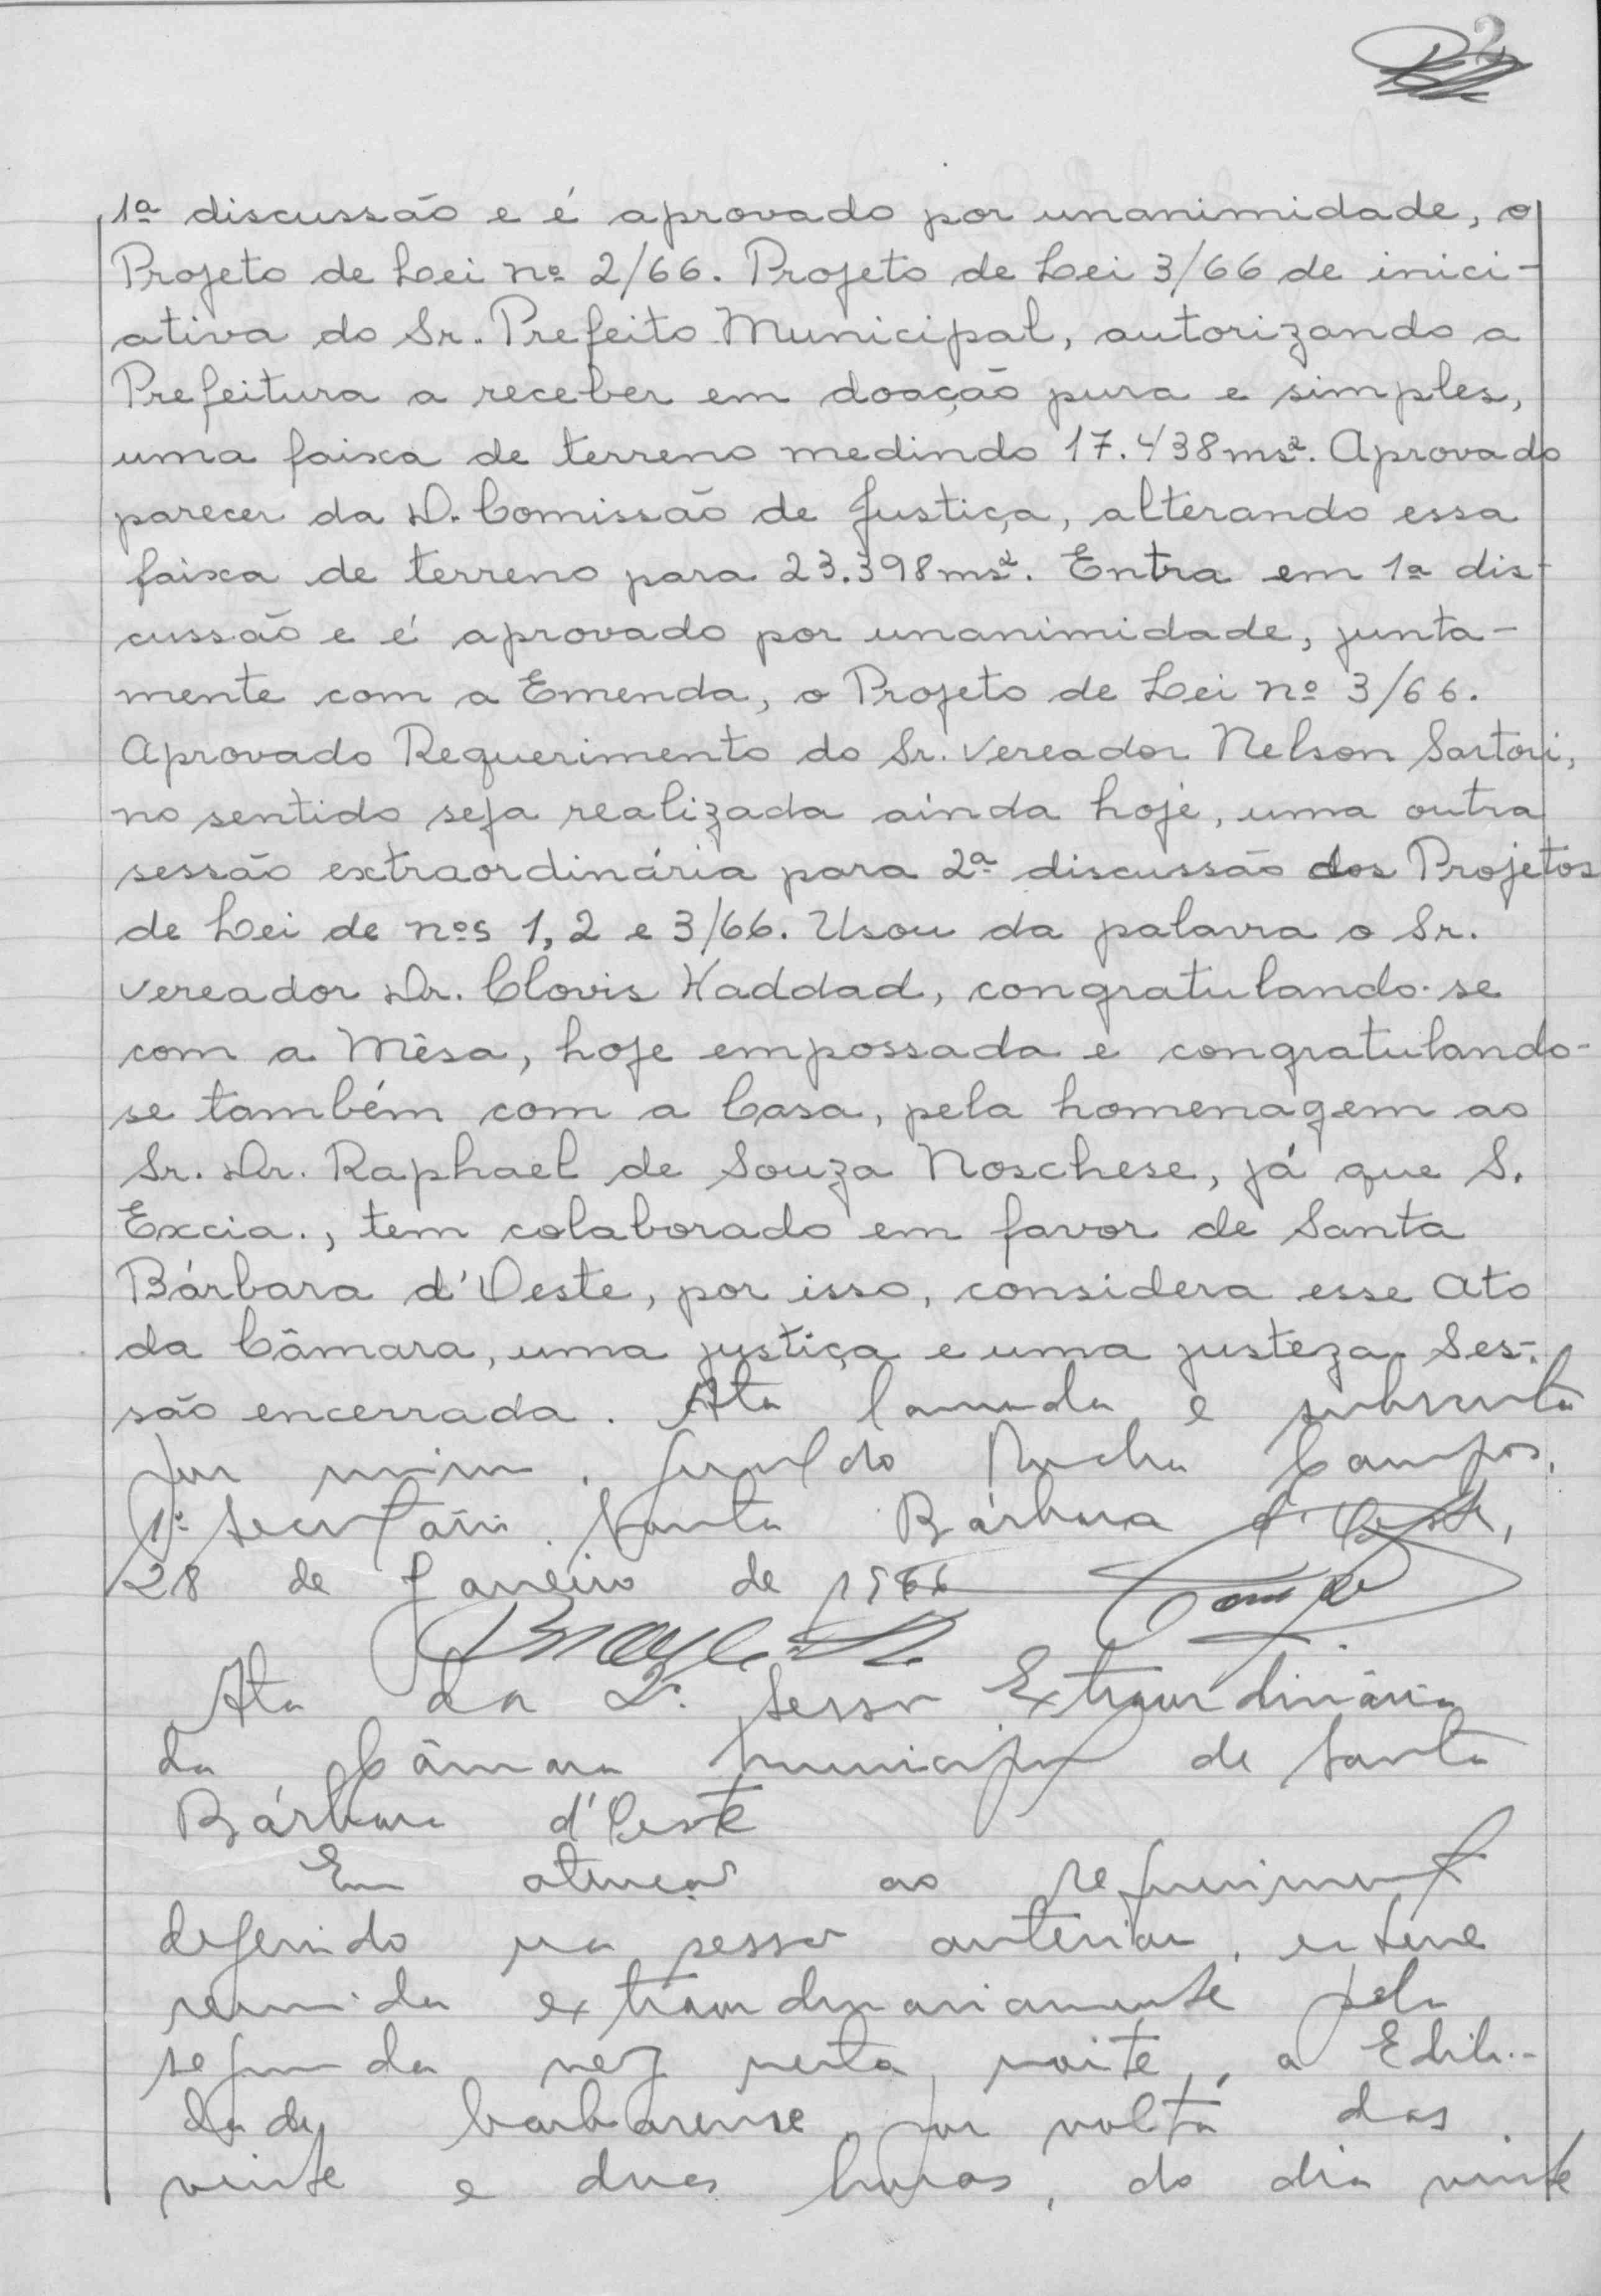 2
1ª discussão e é aprovado por unanimidade, o
Projeto de Lei nº 2/66. Projeto de Lei 3/66 de inici-
ativa do Sr. Prefeito Municipal, autorizando a
Prefeitura a receber em doação pura e simples,
uma faixa de terreno medindo 17.438ms². Aprovado
parecer da D. Comissão de Justiça, alterando essa
faixa de terreno para 23.398ms². Entra em 1ª dis-
cussão e é aprovado por unanimidade, junta-
mente com a Emenda, o Projeto de Lei nº 3/66.
Aprovado Requerimento do Sr. Vereador Nelson Sartori,
no sentido seja realizada ainda hoje, uma outra
sessão extraordinária para 2ª discussão dos Projetos
de Lei de nºs 1, 2 e 3/66. Usou da palavra o Sr.
Vereador Dr. Clovis Haddad, congratulando-se
com a Mêsa, hoje empossada e congratulando-
se também com a Casa, pela homenagem ao
Sr. Dr. Raphael de Souza Noschese, já que S.
Excia., tem colaborado em favor de Santa
Bárbara d'Oeste, por isso, considera esse Ato
da Câmara, uma justiça e uma justeza. Ses-
são encerrada. Ata lavrada e subscrita
por mim. Geraldo Rocha Campos,
1º Secretário. Santa Bárbara d'Oeste,
28 de Janeiro de 1966
Ata da 2ª Sessão Extraordinária
da Câmara Municipal de Santa
Bárbara d'Oeste
Em atenção ao requerimento
deferido na sessão anterior, esteve
reunida extraordinariamente pela
segunda vez nesta noite, a Edili-
dade barbarense, por volta das
vinte e duas horas, do dia vinte